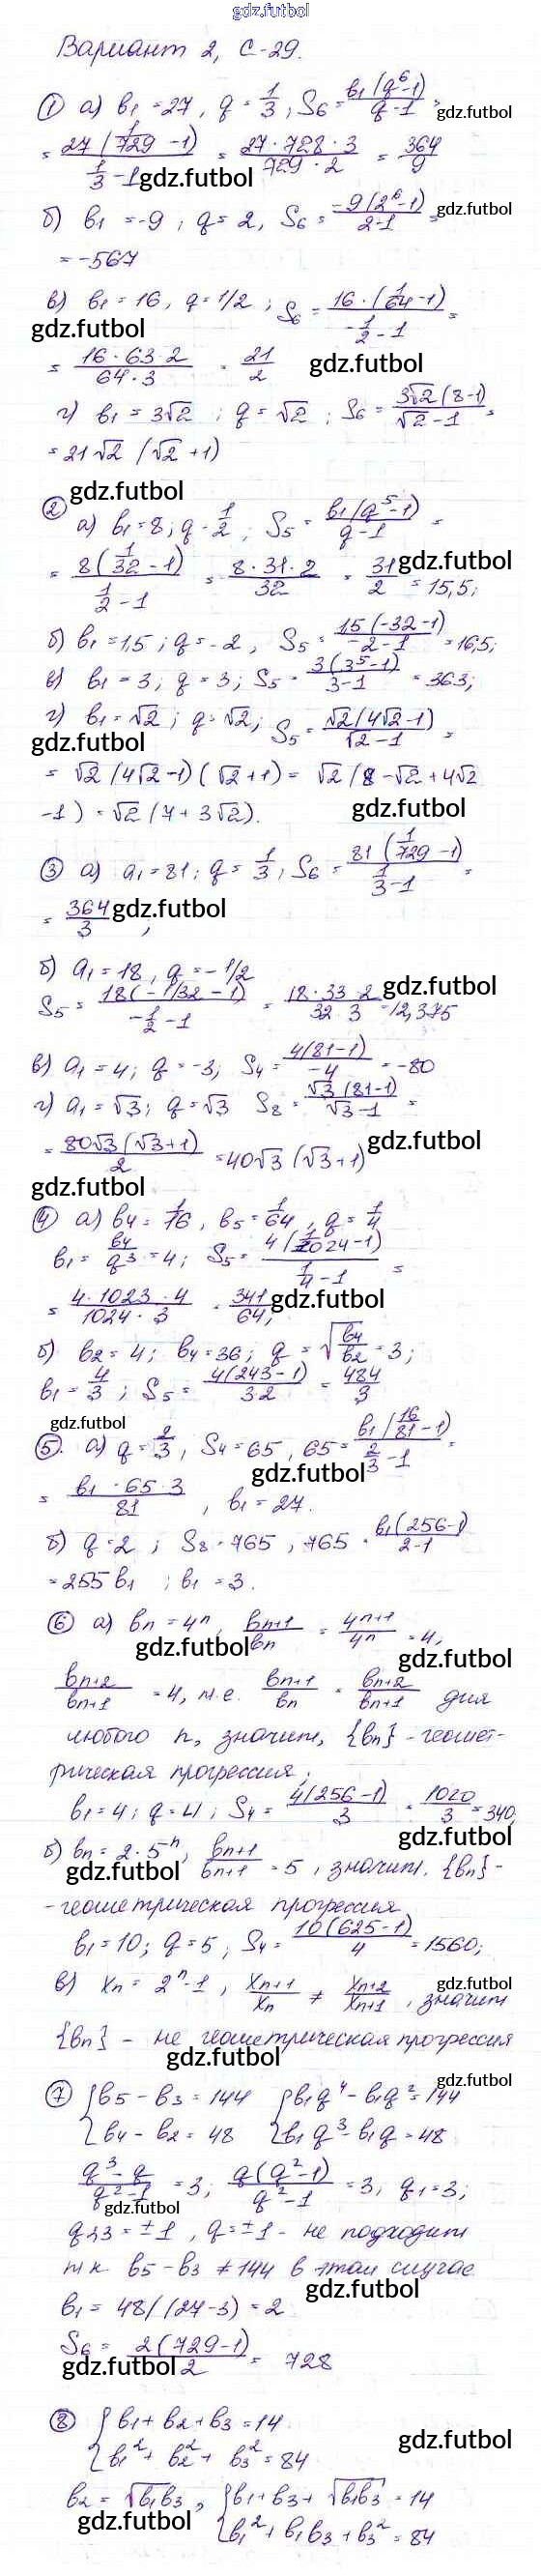 gdz.futbol
Вариант 2, С-29.
① а) b₁ = 27, q = 1/3; S₆ = b₁(q⁶-1)/(q-1) =
gdz.futbol
= 27(1/729 - 1)/(1/3 - 1) = 27·728·3/(729·2) = 364/9
gdz.futbol
б) b₁ = -9; q = 2, S₆ = -9(2⁶-1)/(2-1) =
gdz.futbol
= -567
в) b₁ = 16, q = 1/2; S₆ = 16·(1/64 - 1)/(-1/2 - 1) =
gdz.futbol
= 16·63·2/(64·3) = 21/2
gdz.futbol
г) b₁ = 3√2; q = √2; S₆ = 3√2(8-1)/(√2-1) =
= 21√2 (√2+1)
gdz.futbol
② а) b₁ = 8; q = 1/2; S₅ = b₁(q⁵-1)/(q-1) =
gdz.futbol
= 8(1/32 - 1)/(1/2 - 1) = 8·31·2/32 = 31/2 = 15,5;
б) b₁ = 1,5; q = -2, S₅ = 1,5(-32-1)/(-2-1) = 16,5;
в) b₁ = 3; q = 3; S₅ = 3(3⁵-1)/(3-1) = 363;
г) b₁ = √2; q = √2; S₅ = √2(4√2-1)/(√2-1) =
gdz.futbol
= √2(4√2-1)(√2+1) = √2(8-√2+4√2
-1) = √2(7+3√2).
gdz.futbol
③ а) a₁ = 81; q = 1/3; S₆ = 81(1/729 - 1)/(1/3 - 1) =
= 364/3,
gdz.futbol
б) a₁ = 18, q = -1/2
gdz.futbol
S₅ = 18(-1/32 - 1)/(-1/2 - 1) = 18·33·2/(32·3) = 12,375
в) a₁ = 4; q = -3; S₄ = 4(81-1)/(-4) = -80
г) a₁ = √3; q = √3 S₈ = √3(81-1)/(√3-1) =
gdz.futbol
= 80√3(√3+1)/2 = 40√3(√3+1)
gdz.futbol
④ а) b₄ = 1/16, b₅ = 1/64, q = 1/4
b₁ = b₄/q³ = 4; S₅ = 4(1/1024 - 1)/(1/4 - 1) =
= 4·1023·4/(1024·3) = 341/64;
gdz.futbol
б) b₂ = 4; b₄ = 36; q = √(b₄/b₂) = 3;
b₁ = 4/3; S₅ = 4(243-1)/(3·2) = 484/3
gdz.futbol
⑤. а) q = 2/3, S₄ = 65, 65 = b₁(16/81 - 1)/(2/3 - 1) =
gdz.futbol
= b₁·65·3/81, b₁ = 27.
б) q = 2; S₈ = 765, 765 = b₁(256-1)/(2-1)
= 255b₁; b₁ = 3.
⑥ а) bn = 4ⁿ, bn+1/bn = 4ⁿ⁺¹/4ⁿ = 4,
gdz.futbol
gdz.futbol
bn+2/bn+1 = 4, т.е. bn+1/bn = bn+2/bn+1 для
любого n, значит, {bn} - геомет-
рическая прогрессия;
b₁ = 4; q = 4; S₄ = 4(256-1)/3 = 1020/3 = 340;
gdz.futbol
б) bn = 2·5ⁿ, bn+1/bn+1 = 5, значит, {bn} -
gdz.futbol
- геометрическая прогрессия
b₁ = 10; q = 5; S₄ = 10(625-1)/4 = 1560;
в) xn = 2ⁿ-1, xn+1/xn ≠ xn+2/xn+1, значит
gdz.futbol
{bn} - не геометрическая прогрессия
gdz.futbol
⑦ {b₅ - b₃ = 144 {b₁q⁴ - b₁q² = 144
gdz.futbol
{b₄ - b₂ = 48 {b₁q³ - b₁q = 48
(q³-q)/(q²-1) = 3; q(q²-1)/(q²-1) = 3, q₁ = 3;
gdz.futbol
q₂,₃ = ±1, q = ±1 - не подходит
т.к. b₅ - b₃ ≠ 144 в этом случае
gdz.futbol
b₁ = 48/(27-3) = 2
S₆ = 2(729-1)/2 = 728
gdz.futbol
⑧ {b₁ + b₂ + b₃ = 14
gdz.futbol
{b₁² + b₂² + b₃² = 84
b₂ = √b₁b₃, {b₁ + b₃ + √b₁b₃ = 14
gdz.futbol
{b₁² + b₁b₃ + b₃² = 84